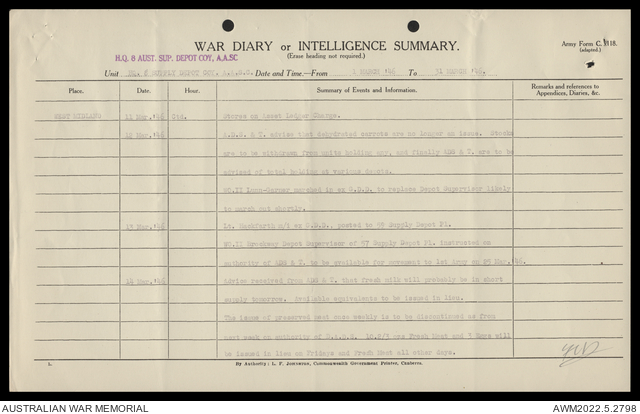 WAR DIARY or INTELLIGENCE SUMMARY.
(Erase heading not required.)
Army Form C. 2118.
(adapted.)
H.Q. 8 AUST. SUP. DEPOT COY, A.A.S.C.
Unit No. 8 SUPPLY DEPOT COY. A.A.S.C. Date and Time.—From 1 MARCH '46 To 31 MARCH '46.
Place. Date. Hour. Summary of Events and Information. Remarks and references to Appendices, Diaries, &c.
WEST MIDLAND 11 Mar.'46 Ctd. Stores on Asset Ledger Charge.
12 Mar.'46 A.D.S. & T. advise that dehydrated carrots are no longer on issue. Stocks
are to be withdrawn from units holding any, and finally ADS & T. are to be
advised of total holding at various depots.
WO.II marched in ex G.D.D. to replace Depot Supervisor likely
to march out shortly.
13 Mar.'46 Lt. m/i ex G.D.D., posted to 55 Supply Depot Pl.
WO.II Brockway Depot Supervisor of 57 Supply Depot Pl. instructed on
authority of ADS & T. to be available for movement to 1st Army on 25 Mar.'46.
14 Mar.'46 Advice received from ADS & T. that fresh milk will probably be in short
supply tomorrow. Available equivalents to be issued in lieu.
The issue of preserved meat once weekly is to be discontinued as from
next week on authority of 10.2/3 ozs Fresh Meat and 2 Eggs will
be issued in lieu on Fridays and Fresh Meat all other days.
1. By Authority: L. F. Johnston, Commonwealth Government Printer, Canberra.
AUSTRALIAN WAR MEMORIAL
AWM2022.5.2798